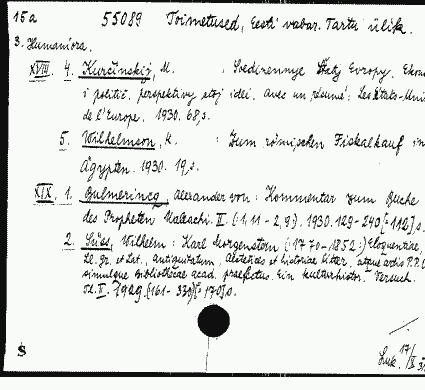 15a 55089 Toimetused, Eesti vabar. Tartu ülik.
3. Humaniora.
XVIII. 4. Kurčinskij, M. : Soedinennye Štaty Evropy. Ekono
i politič. perspektivy etoj idei. Avec un résumé: Les États-Unis
de l'Europe. 1930. 68,s.
5. Wilhelmson, K. : Zum römischen Fiskalkauf in
Ägypten. 1930. 19,s.
XIX. 1. Bulmerincq, Alexander von: Kommentar zum Buche
des Propheten Maleachi. II. (:1,11 - 2,9:). 1930. 129-240 [=112] s.
2. Süss, Wilhelm: Karl Morgenstern (:1770-1852:) Eloquentiae,
Ll. Gr. et Lat., antiquitatum, aestetices et historiae litter. atque artis P.P.O
simulque bibliothecae acad. praefectus. Ein kulturhistor. Versuch.
Tl. II. 1929. (161- 330) [=170] s.
S